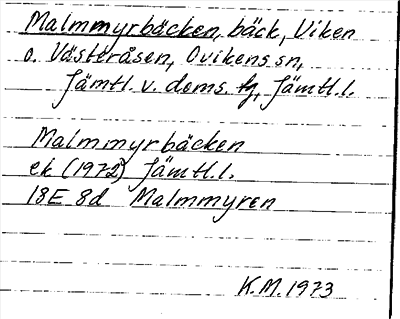 Malmmyrbäcken, bäck, Viken
o. Västeråsen, Ovikens sn,
Jämtl. v. doms. fg, Jämtl. l.
Malmmyrbäcken
ek (1972) Jämtl. l.
18E 8d Malmmyren
K.M. 1973